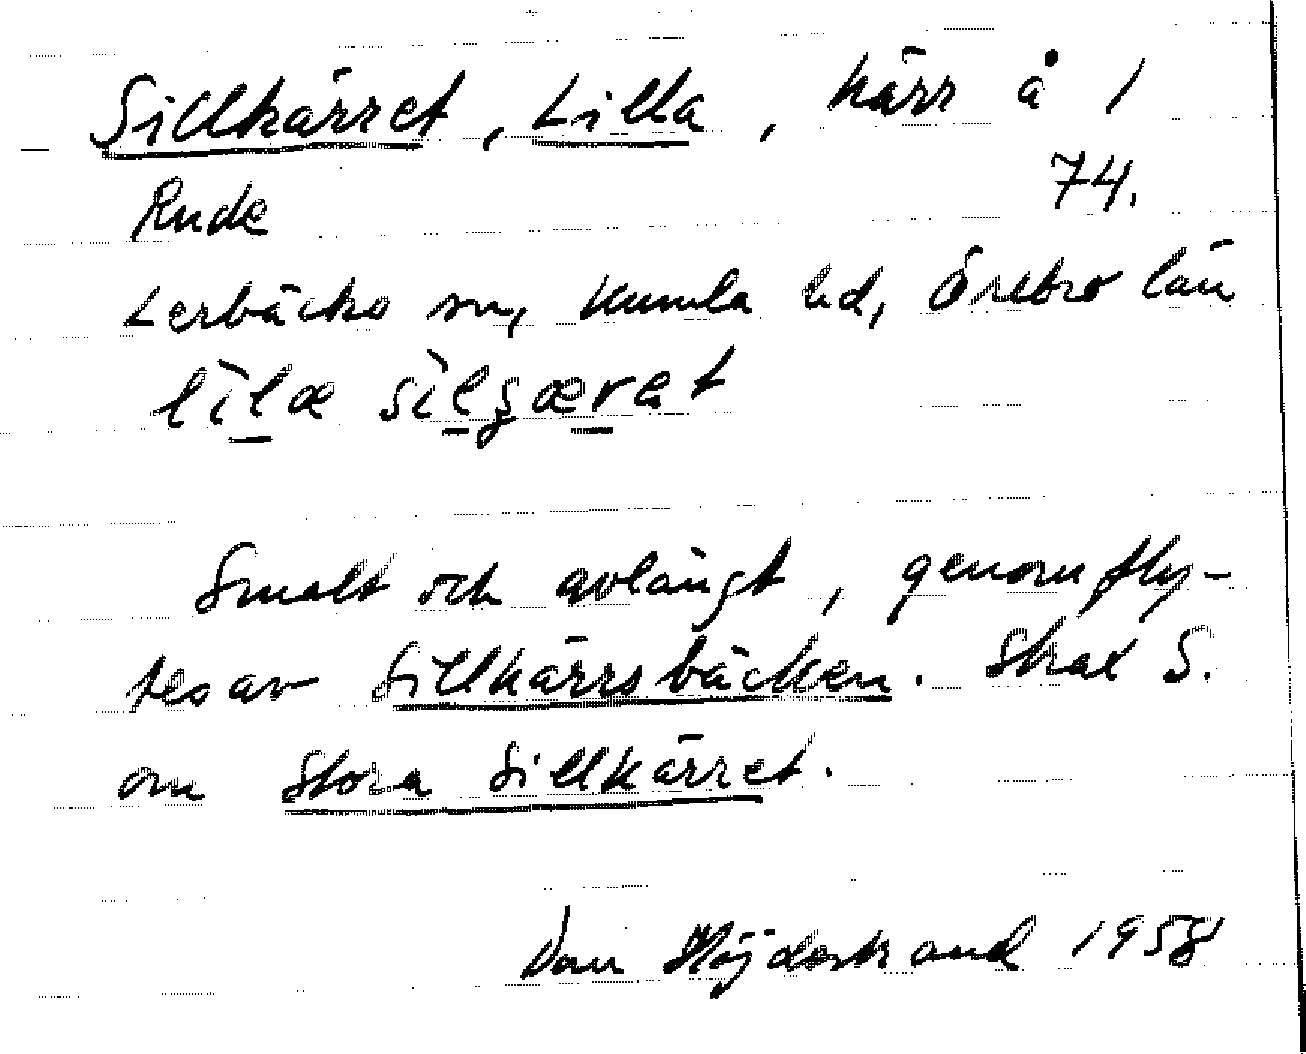 Sillkärret, Lilla, kärr å 1
Rude 74.
Lerbäcks sn, Kumla hd, Örebro län
lìlæ sìlʒæret
Smalt och avlångt, genomfly-
tes av Sillkärrsbäcken. Strax S.
om Stora Sillkärret.
Dan Höjdestrand 1958